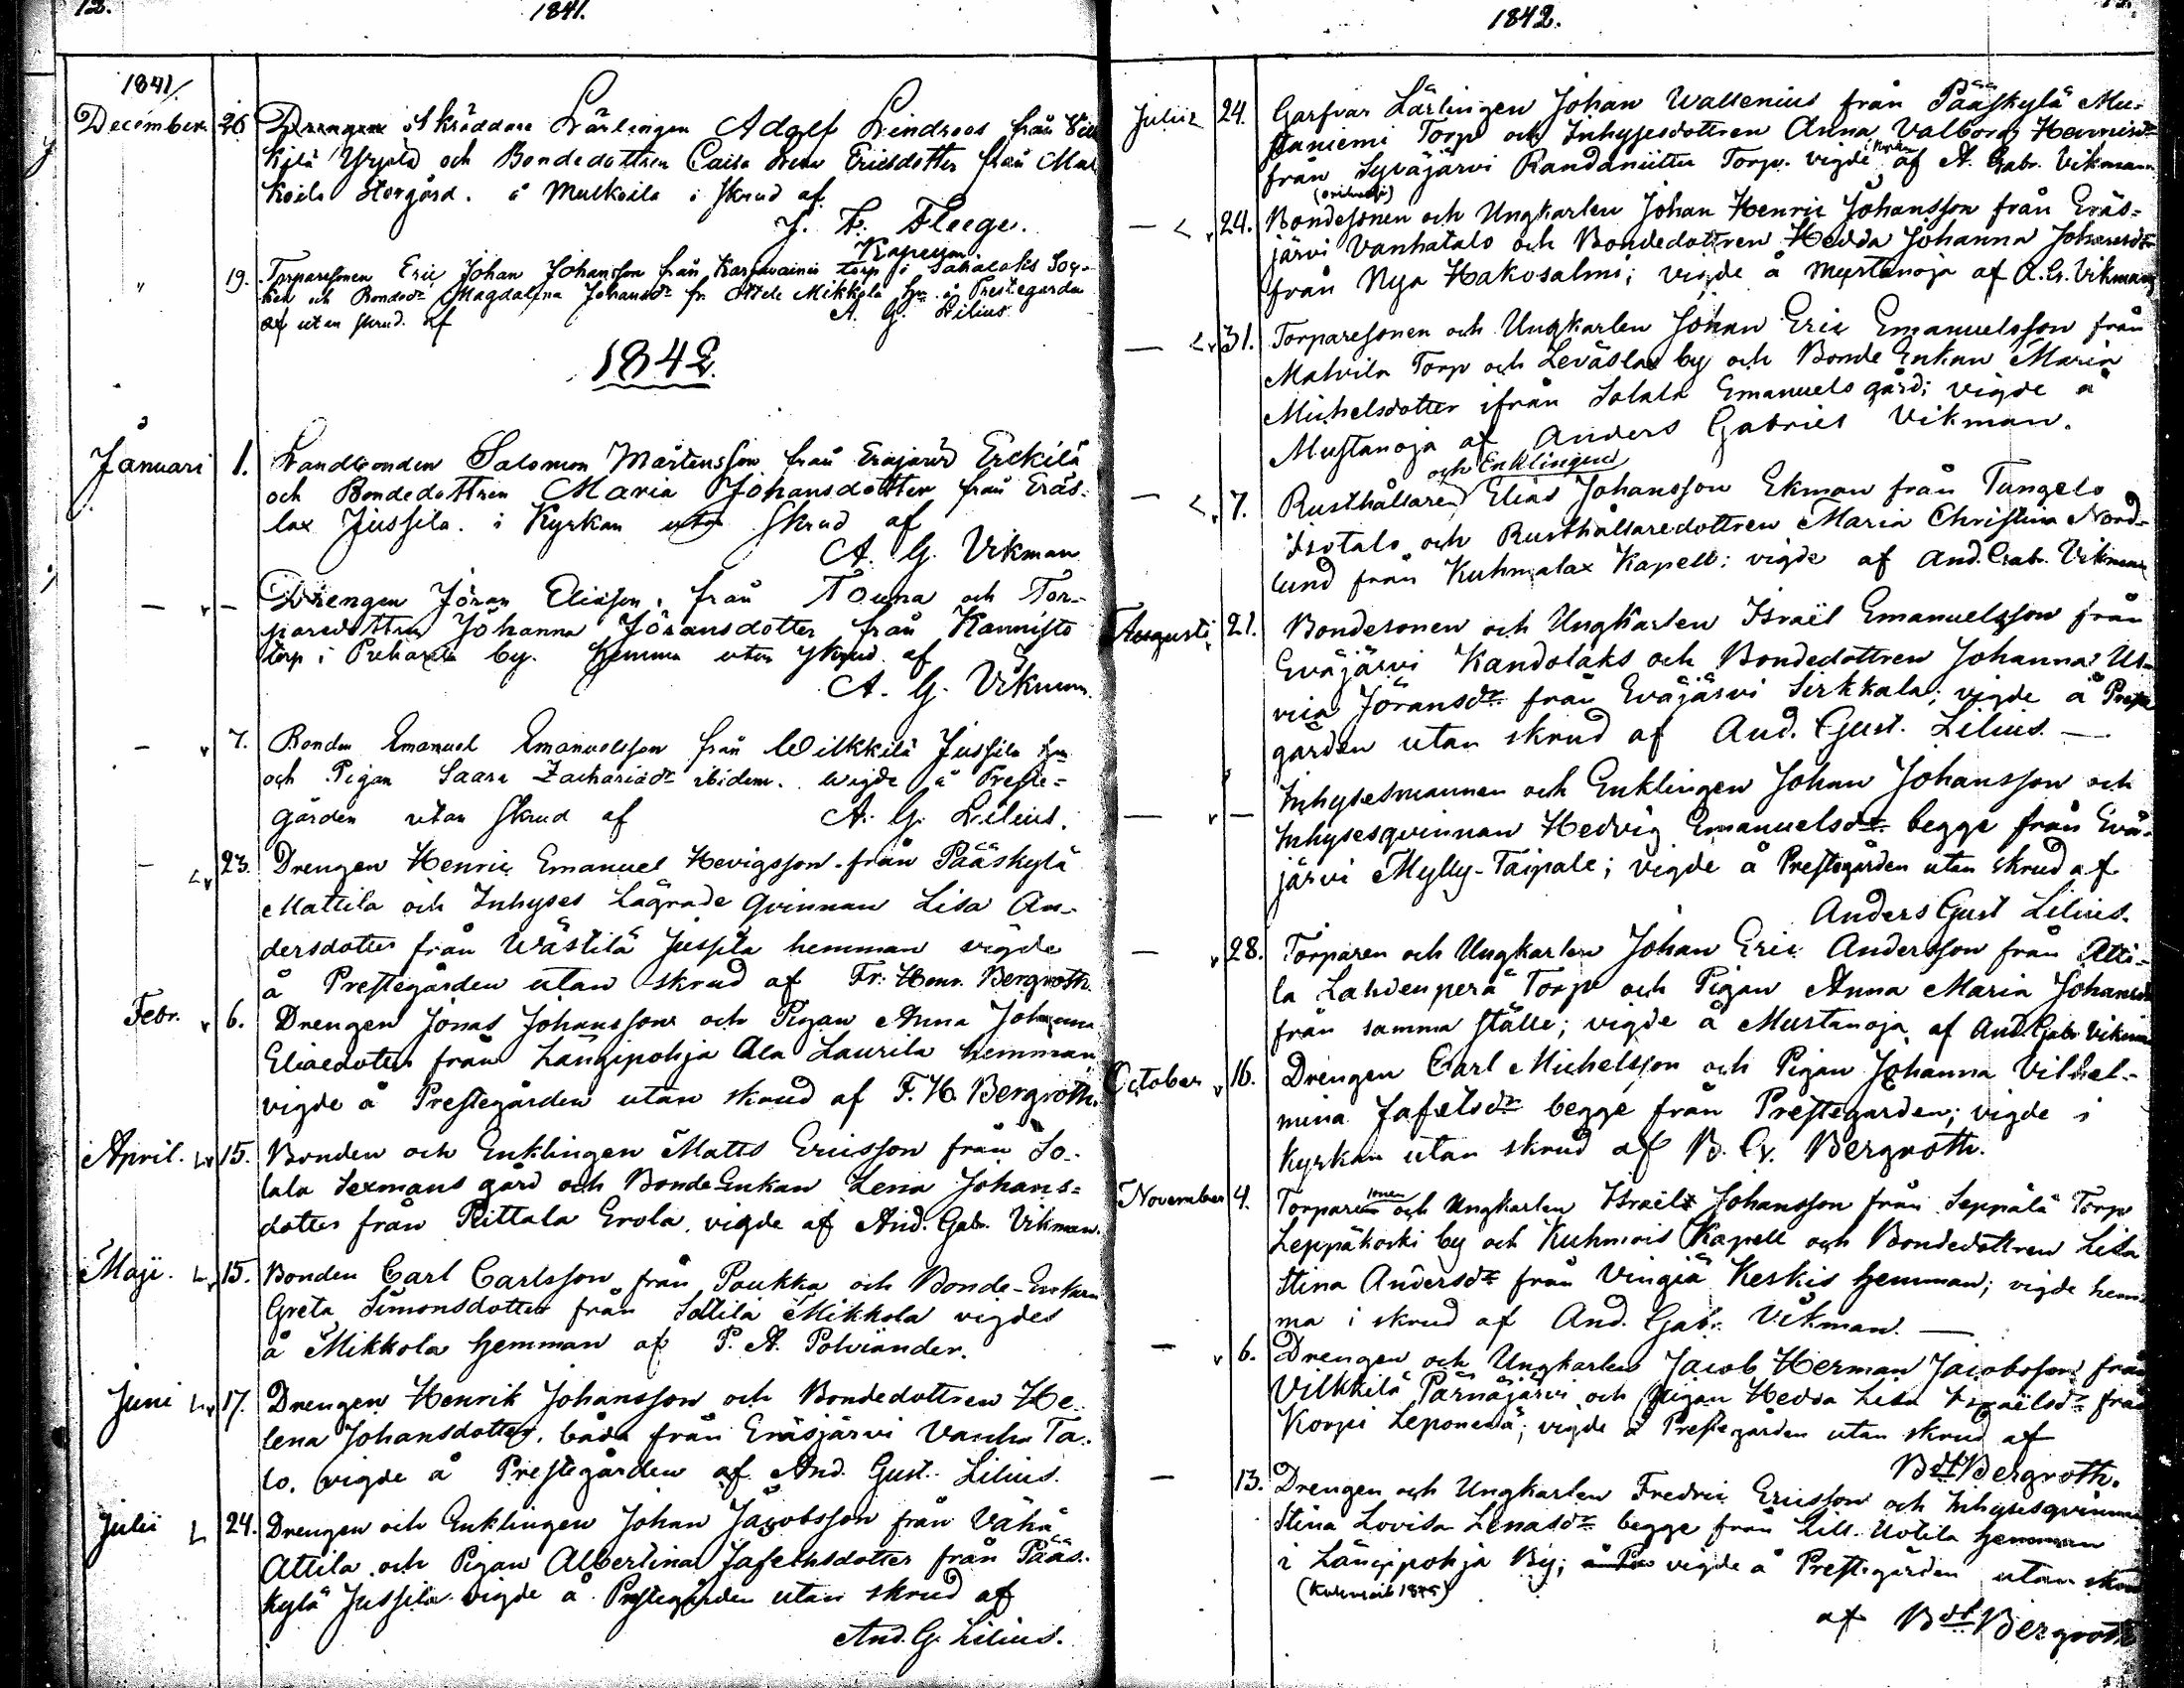 12.
1841.
1841/
December 26 Drengen Skräddare Lärlingen Adolf Lindroos från
kylä Yrjölä och Bondedottren Caisa Ericsdotter från Mul
koila Storgård. å Mulkoila i skrud af
J. F. Fleege.
Kapellan
" 19. Torparesonen Eric Johan Johansson från Karjavainio torp i Sahalaks Soc-
ken och Bondedr Magdalena Johansdr fr. Ottela Mikkola hn å Prestegården
af utan skrud. af A. G. Lilius
1842.
Januari 1. Landbonden Salomon Mårtensson från Eräjärvi Erckilä
och Bondedottren Maria Johansdotter från Eräs-
lax Jussila. i Kyrkan utan skrud af
A. G. Vikman
— v — Drengen Jöran Eliasson, från Touna och Tor-
paredottren Johanna Jöransdotter från Kannisto
torp i Puharila by. hemma utan skrud af
A. G. Vikman.
— v 7. Bonden Emanuel Emanuelsson från Wilkkilä Jussila hn
och Pigan Saara Zachariædr ibidem. wigde å Preste-
gården utan skrud af A. G. Lilius.
— v 23. Drengen Henric Emanuel Hevigsson från Pääskylä
Mattila och Inhyses Lägrade qvinnan Lisa An-
dersdotter från Wästilä Jussila hemman vigde
å Prestegården utan skrud af Fr: Henr. Bergroth.
Febr. v 6. Drengen Jonas Johansson och Pigan Anna Johanna
Eliaedotter från Längipohja Ala Laurila hemman
vigde å Prestegården utan skrud af F. H. Bergroth.
April. L v 15. Bonden och Enklingen Matts Ericsson från So-
lala Sexmans gård och BondeEnkan Lena Johans-
dotter från Pittala Erola, vigde af And. Gab. Vikman.
Maji. L v 15. Bonden Carl Carlsson från Paukka och Bonde-Enkan
Greta Simonsdotter från Sattila Mikkola vigdes
å Mikkola hemman af P. A. Polviander.
Juni L v 17. Drengen Henrik Johansson och Bondedottren He-
lena Johansdotter, båda från Eräsjärvi Vanha Ta-
lo. vigde å Prestegården af And. Gust. Lilius.
Julii L 24. Drengen och Enklingen Johan Jacobsson från Vähä
Attila och Pigan Albertina Jafethsdotter från Pääs-
kylä Jussila vigde å Prestegården utan skrud af
And. G. Lilius.
1842.
Julii 24. Garfvar Lärlingen Johan Wallenius från Pääskylä Mu-
staniemi Torp och Inhysesdottren Anna Valborg Henricsdr
från Syväjärvi Randaniittu Torp. vigde i Kyrkan af A. Gabr. Vikman
— v 24. Bondesonen och Ungkarlen Johan Henric Johansson från Eräs-
järvi Vanhatalo och Bondedottren Hedda Johanna Johansdr
från Nya Hakosalmi; vigde å Mustanoja af A. G. Vikman
— v 31. Torparesonen och Ungkarlen Johan Eric Emanuelsson från
Mahvila Torp och Leväslax by och Bonde Enkan Maria
Michelsdotter ifrån Solala Emanuels gård; vigde å
Mustanoja af Anders Gabriel Vikman.
och Enklingen
— v 7. Rusthållaren Elias Johansson Ekman från Tungelo
Isotalo och Rusthållaredottren Maria Christina Nord-
lund från Kuhmalax Kapell; vigde af And. Gab. Vikman
Augusti 21. Bondesonen och Ungkarlen Israël Emanuelsson från
Eväjärvi Kandolaks och Bondedottren Johanna Ul-
rica Jöransdr från Eväjärvi Sirkkala; vigde å Preste
gården utan skrud af And. Gust. Lilius. —
— v — Inhysesmannen och Enklingen Johan Johansson och
Inhysesqvinnan Hedvig Emanuelsdr begge från Evä-
järvi Mylly-Taipale; vigde å Prestegården utan skrud af
Anders Gust Lilius.
— v 28. Torparen och Ungkarlen Johan Eric Andersson från Atti-
la Lahdenperä Torp och Pigan Anna Maria Johansdr
från samma ställe; vigde å Mustanoja af And. Gab. Vikman
October v 16. Drengen Carl Michelsson och Pigan Johanna Vilhel-
mina Jafetsdr begge från Prestegården; vigde i
kyrkan utan skrud af B. G. Bergroth.
November 4. Torparesonen och Ungkarlen Israel Johansson från Seppälä Torp
Leppäkoski by och Kuhmois Kapell och Bondedottren Lisa
Stina Andersdr från Vingiä Keskis hemman; vigde hem-
ma i skrud af And. Gabr. Vikman. —
— v 6. Drengen och Ungkarlen Jacob Herman Jacobsson från
Vilkkilä Pärnäjärvi och Pigan Hedda Lisa Israëlsdr från
Korpi Leponemä; vigde å Prestegården utan skrud af
Bdt Bergroth.
— 13. Drengen och Ungkarlen Fredric Ericsson och Inhysesqvinnan
Stina Lovisa Lenasdr begge från Lill-Uotila hemman
i Längipohja By; vigde å Prestegården utan skrud
af Bdt Bergroth